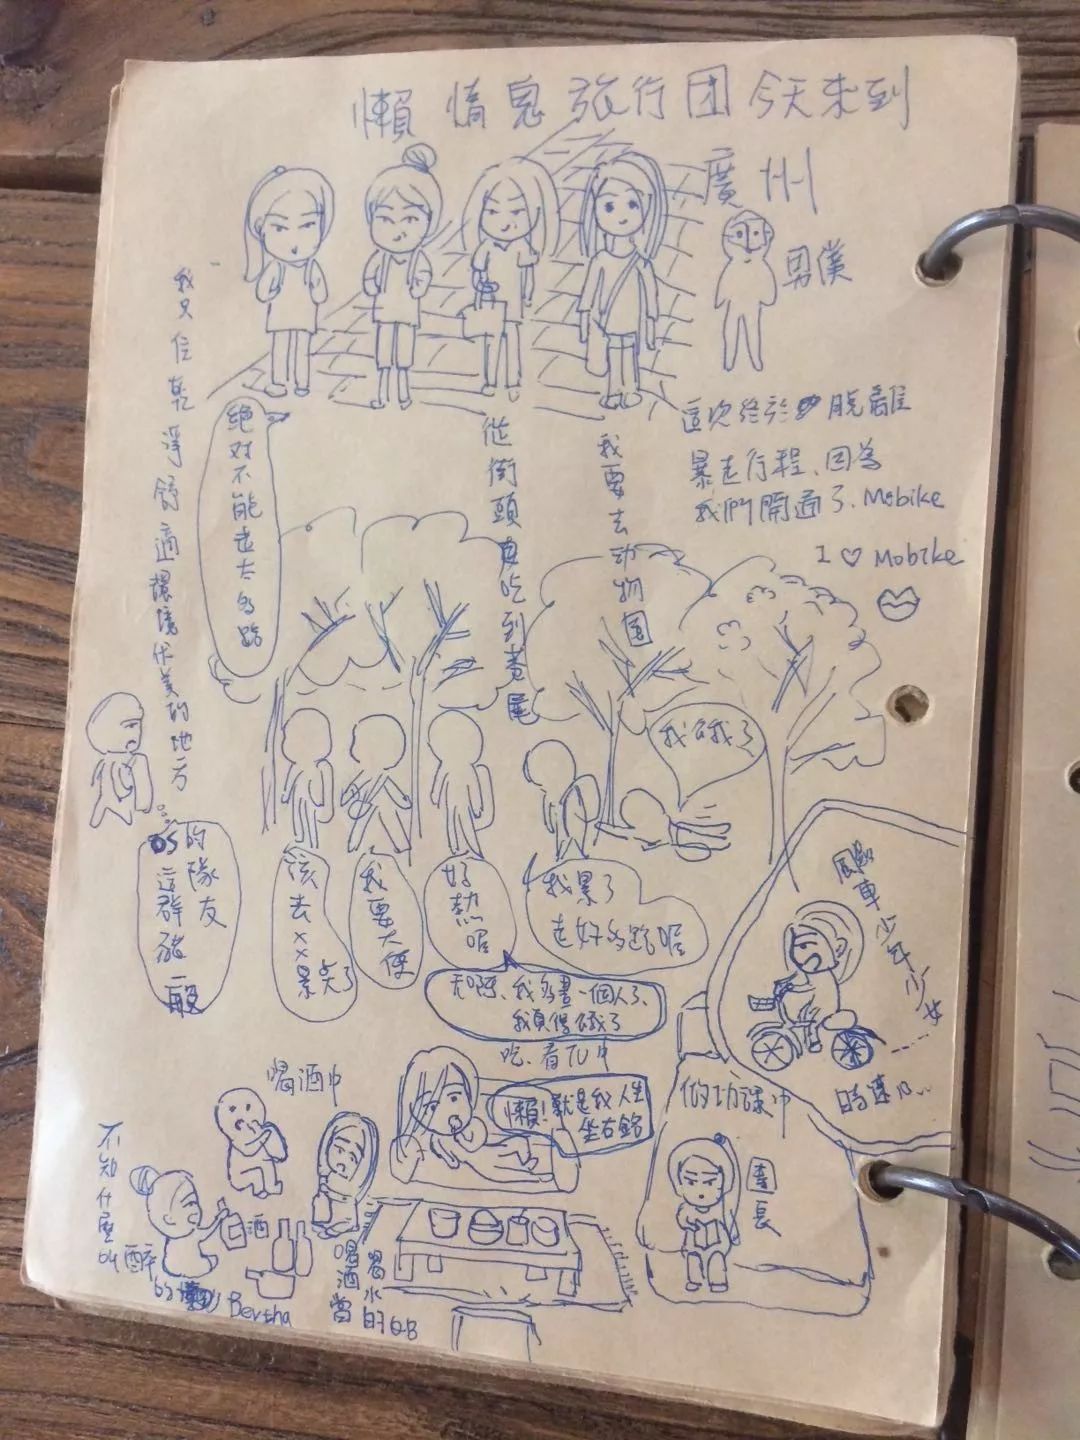 懶惰鬼旅行团今天来到
廣州
男僕
我只住乾淨舒適環境优美的地方
绝对不能走太多路
從街頭吃到巷尾
我要去动物园
這次終於脫離
暴走行程、因為
我們開通了、Mobike
I ♡ Mobike
我餓了
OS
的隊友
這群豬一般
該去xx景点了
我要大便
好熱喔
我累了
走好多路喔
天啊、我多畫一個人了、
我真得餓了
飆車少年少女
時速10...
喝酒中
吃、看TV中
懶!就是我人生
坐右銘
做功課中
團長
不知什麼叫醉
的
Bertha
白酒
喝酒當喝水
的GB